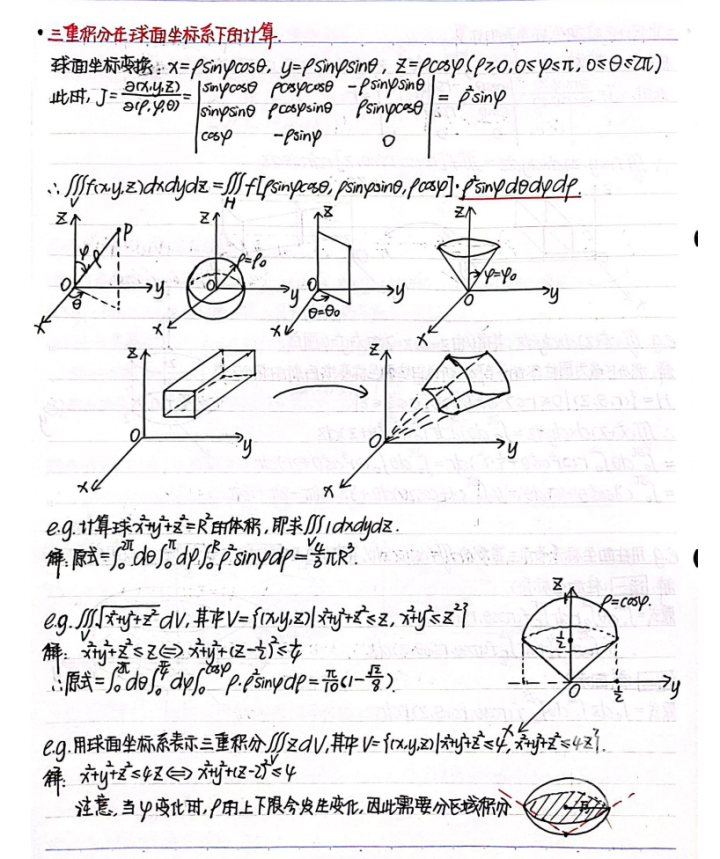 • 三重积分在球面坐标系下的计算.
球面坐标变换: x=ρsinφcosθ, y=ρsinφsinθ, z=ρcosφ(ρ≥0, 0≤φ≤π, 0≤θ≤2π)
此时, J=∂(x,y,z)/∂(ρ,φ,θ)=|sinφcosθ ρcosφcosθ -ρsinφsinθ
sinφsinθ ρcosφsinθ ρsinφcosθ
cosφ -ρsinφ 0|=ρ²sinφ
∴∭_V f(x,y,z)dxdydz=∭_H f[ρsinφcosθ, ρsinφsinθ, ρcosφ]·ρ²sinφdθdφdρ.
z φ ρ P O θ y x
z ρ=ρ₀ O y x
z O θ=θ₀ y x
z φ=φ₀ O y x
z O y x
z O y x
e.g. 计算球x²+y²+z²=R²的体积, 即求∭_V 1dxdydz.
解: 原式=∫₀^{2π}dθ∫₀^π dφ∫₀^R ρ²sinφdρ=4/3πR³.
e.g. ∭_V √(x²+y²+z²) dV, 其中V={(x,y,z)|x²+y²+z²≤z, x²+y²≤z²}
解: x²+y²+z²≤z⇔x²+y²+(z-½)²≤¼
∴原式=∫₀^{2π}dθ∫₀^{π/4}dφ∫₀^{cosφ}ρ·ρ²sinφdρ=π/10(1-√2/8).
z ρ=cosφ. ½ O ½ y x
e.g. 用球面坐标系表示三重积分∭_V zdV, 其中V={(x,y,z)|x²+y²+z²≤4, x²+y²+z²≤4z}.
解: x²+y²+z²≤4z⇔x²+y²+(z-2)²≤4
注意, 当φ变化时, ρ的上下限会发生变化, 因此需要分区域积分